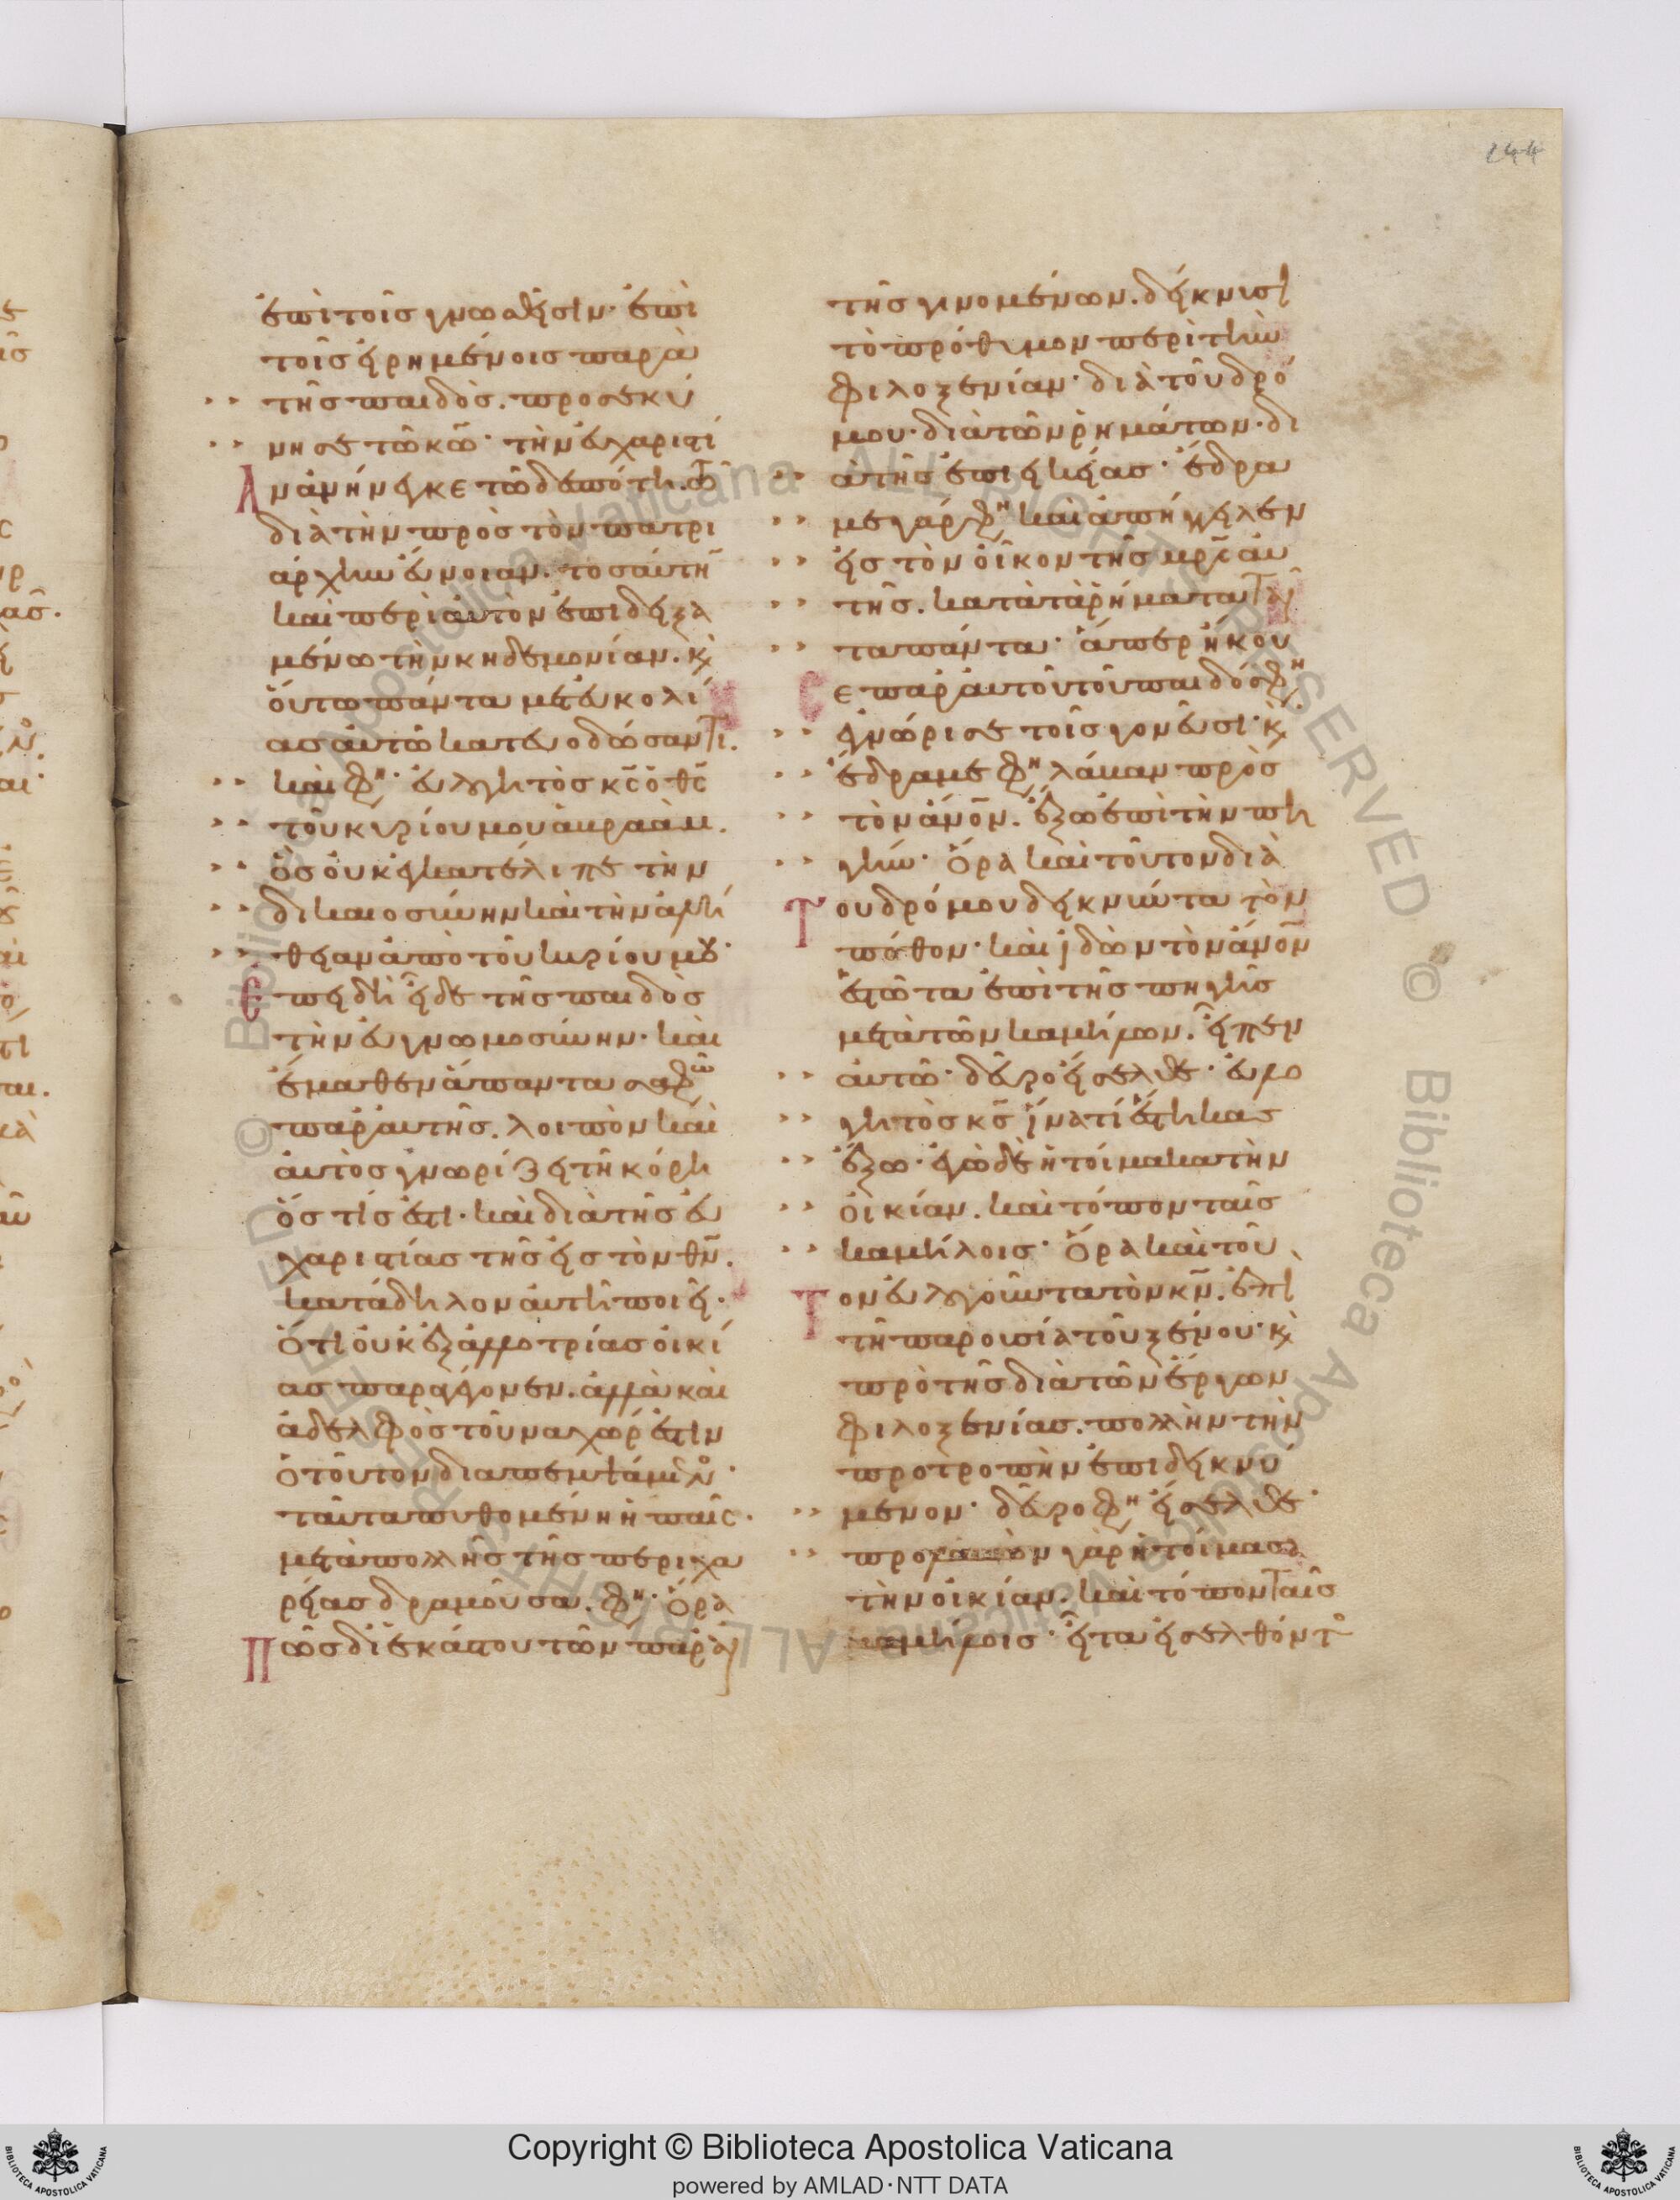 244
ἐπὶ τοῖς γνωσθεῖσιν· ἐπὶ
τοῖς εἰρημένοις παρὰ
τῆς παιδὸς. προσεκύ
νησε τῶ κω̅· τὴν εὐχαριστί
αν ἀνήνεγκε τῶ δεσπότη. τῶ
διὰ τὴν πρὸς τὸν πατρι
άρχην εὔνοιαν. τοσαύτην
καὶ περὶ αὐτὸν ἐπιδειξα
μένω τὴν κηδεμονίαν. κ
οὕτω πάντα μετ' εὐκολί
ας αὐτῶ κατευοδώσαντι.
καί φη· εὐλογητὸς κς̅ ὁ θς̅
τοῦ κυρίου μου ἀβραάμ.
ὃς οὐκ ἐγκατέλιπε τὴν
δικαιοσύνην καὶ τὴν ἀλή
θειαν ἀπὸ τοῦ κυρίου μου·
Ἐπειδὴ εἶδε τῆς παιδὸς
τὴν εὐγνωμοσύνην. καὶ
ἔμαθεν ἅπαντα σαφῶ
παρ' αὐτῆς. λοιπὸν καὶ
αὐτὸς γνωρίζει τῆ κόρη
ὅστίς ἐστι. καὶ διὰ τῆς εὐ
χαριστίας τῆς εἰς τὸν θν̅.
κατάδηλον αὐτῆ ποιεῖ.
ὅτι οὐκ ἐξ ἀλλοτρίας οἰκί
ας παραγέγονεν. ἀλλὰ καὶ
ἀδελφὸς τοῦ ναχώρ ἐστιν
ὁ τοῦτον διαπεμψάμεν·
ταῦτα πυθομένη ἡ παῖς.
μετὰ πολλῆς τῆς περιχα
ρείας δραμοῦσα. φη· ὅρα
πῶς δι' ἑκάστου τῶν παρ' αὐ
τῆς γινομένων. δείκνυσι
τὸ πρόθυμον περὶ τὴν
φιλοξενίαν· διὰ τοῦ δρό
μου· διὰ τῶν ρημάτων· δι
ὰ τῆς ἐπιεικείας· ἔδρα
με γάρ φη καὶ ἀπήγγειλεν
εἰς τὸν οἶκον τῆς μρς̅ αὐ
τῆς. κατὰ τὰ ρήματα ταῦ
τα πάντα· ἅπερ ἤκου
σε παρ' αὐτοῦ τοῦ παιδός φη
ἐγνώρισε τοῖς γονεῦσι· κ
ἔδραμε φη λάβαν πρὸς
τὸν ἄνον̅. ἔξω ἐπὶ τὴν πη
γήν· Ὅρα καὶ τοῦτον διὰ
του δρόμου δεικνύντα τὸν
πόθον· καὶ ἰδὼν τὸν ἄνον̅
ἑστῶτα ἐπὶ τῆς πηγῆς
μετὰ τῶν καμήλων. εἶπεν
αὐτῶ· δεῦρο εἴσελθε· εὐλο
γητὸς κς̅ ἵνα τί ἕστηκας
ἔξω· ἐγὼ δὲ ἡτοίμακα τὴν
οἰκίαν. καὶ τόπον ταῖς
καμήλοις· Ὅρα καὶ τοῦ
τον εὐλογοῦντα τὸν κν̅. ἐπὶ
τῆ παρουσία τοῦ ξένου· κ
πρὸ τῆς διὰ τῶν ἔργων
φιλοξενίας. πολλὴν τὴν
προτροπὴν ἐπιδεικνύ
μενον· δεῦρο φη εἴσελθε·
προλαβὼν γὰρ ἡτοίμασα
τὴν οἰκίαν. καὶ τόπον ταῖς
καμήλοις· εἶτα εἰσελθόντ
Copyright © Biblioteca Apostolica Vaticana
powered by AMLAD·NTT DATA